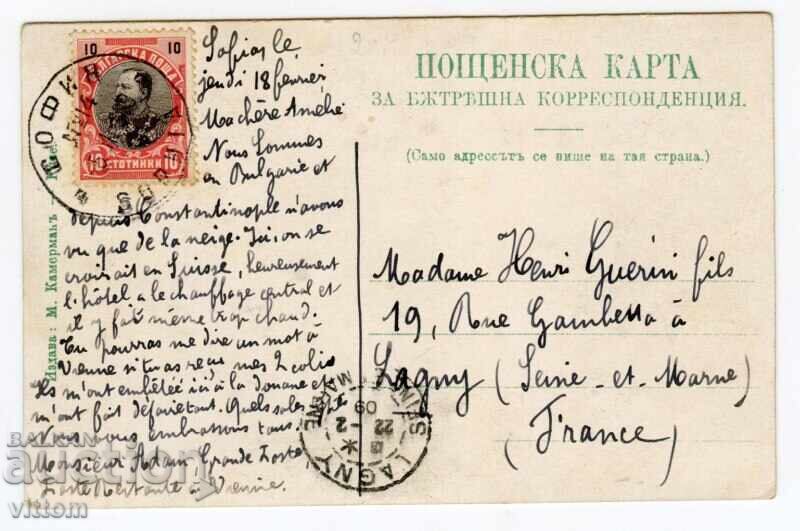 10 10
БЪЛГАРСКА ПОЩА
10 СТОТИНКИ 10
СОФИЯ
SOPHIA
Sofia, le
jeudi 18 fevrier
Ma chère Amélie
Nous sommes
en Bulgarie et
depuis Constantinople n'avons
vu que de la neige. Ici, on se
croirait en Suisse, heureusement
l'hôtel a le chauffage central et
il y fait même trop chaud.
Tu pourras me dire un mot à
Vienne si tu as reçu mes 2 colis
Ils m'ont embêtée ici à la douane et
m'ont fait
Nous vous embrassons tous.
Monsieur Adam, Grande Poste
Poste Restante à Vienne.
ПОЩЕНСКА КАРТА
ЗА ВѪТРѢШНА КОРРЕСПОНДЕНЦИЯ.
(Само адрессътъ се пише на тая страна.)
Madame Henri Guerin fils
19, Rue Gambetta à
Lagny (Seine-et-Marne)
(France)
LAGNY
SEINE ET MARNE
22 -2
09
Издава: М. Камерманъ
BALKAN
Auction
vittom